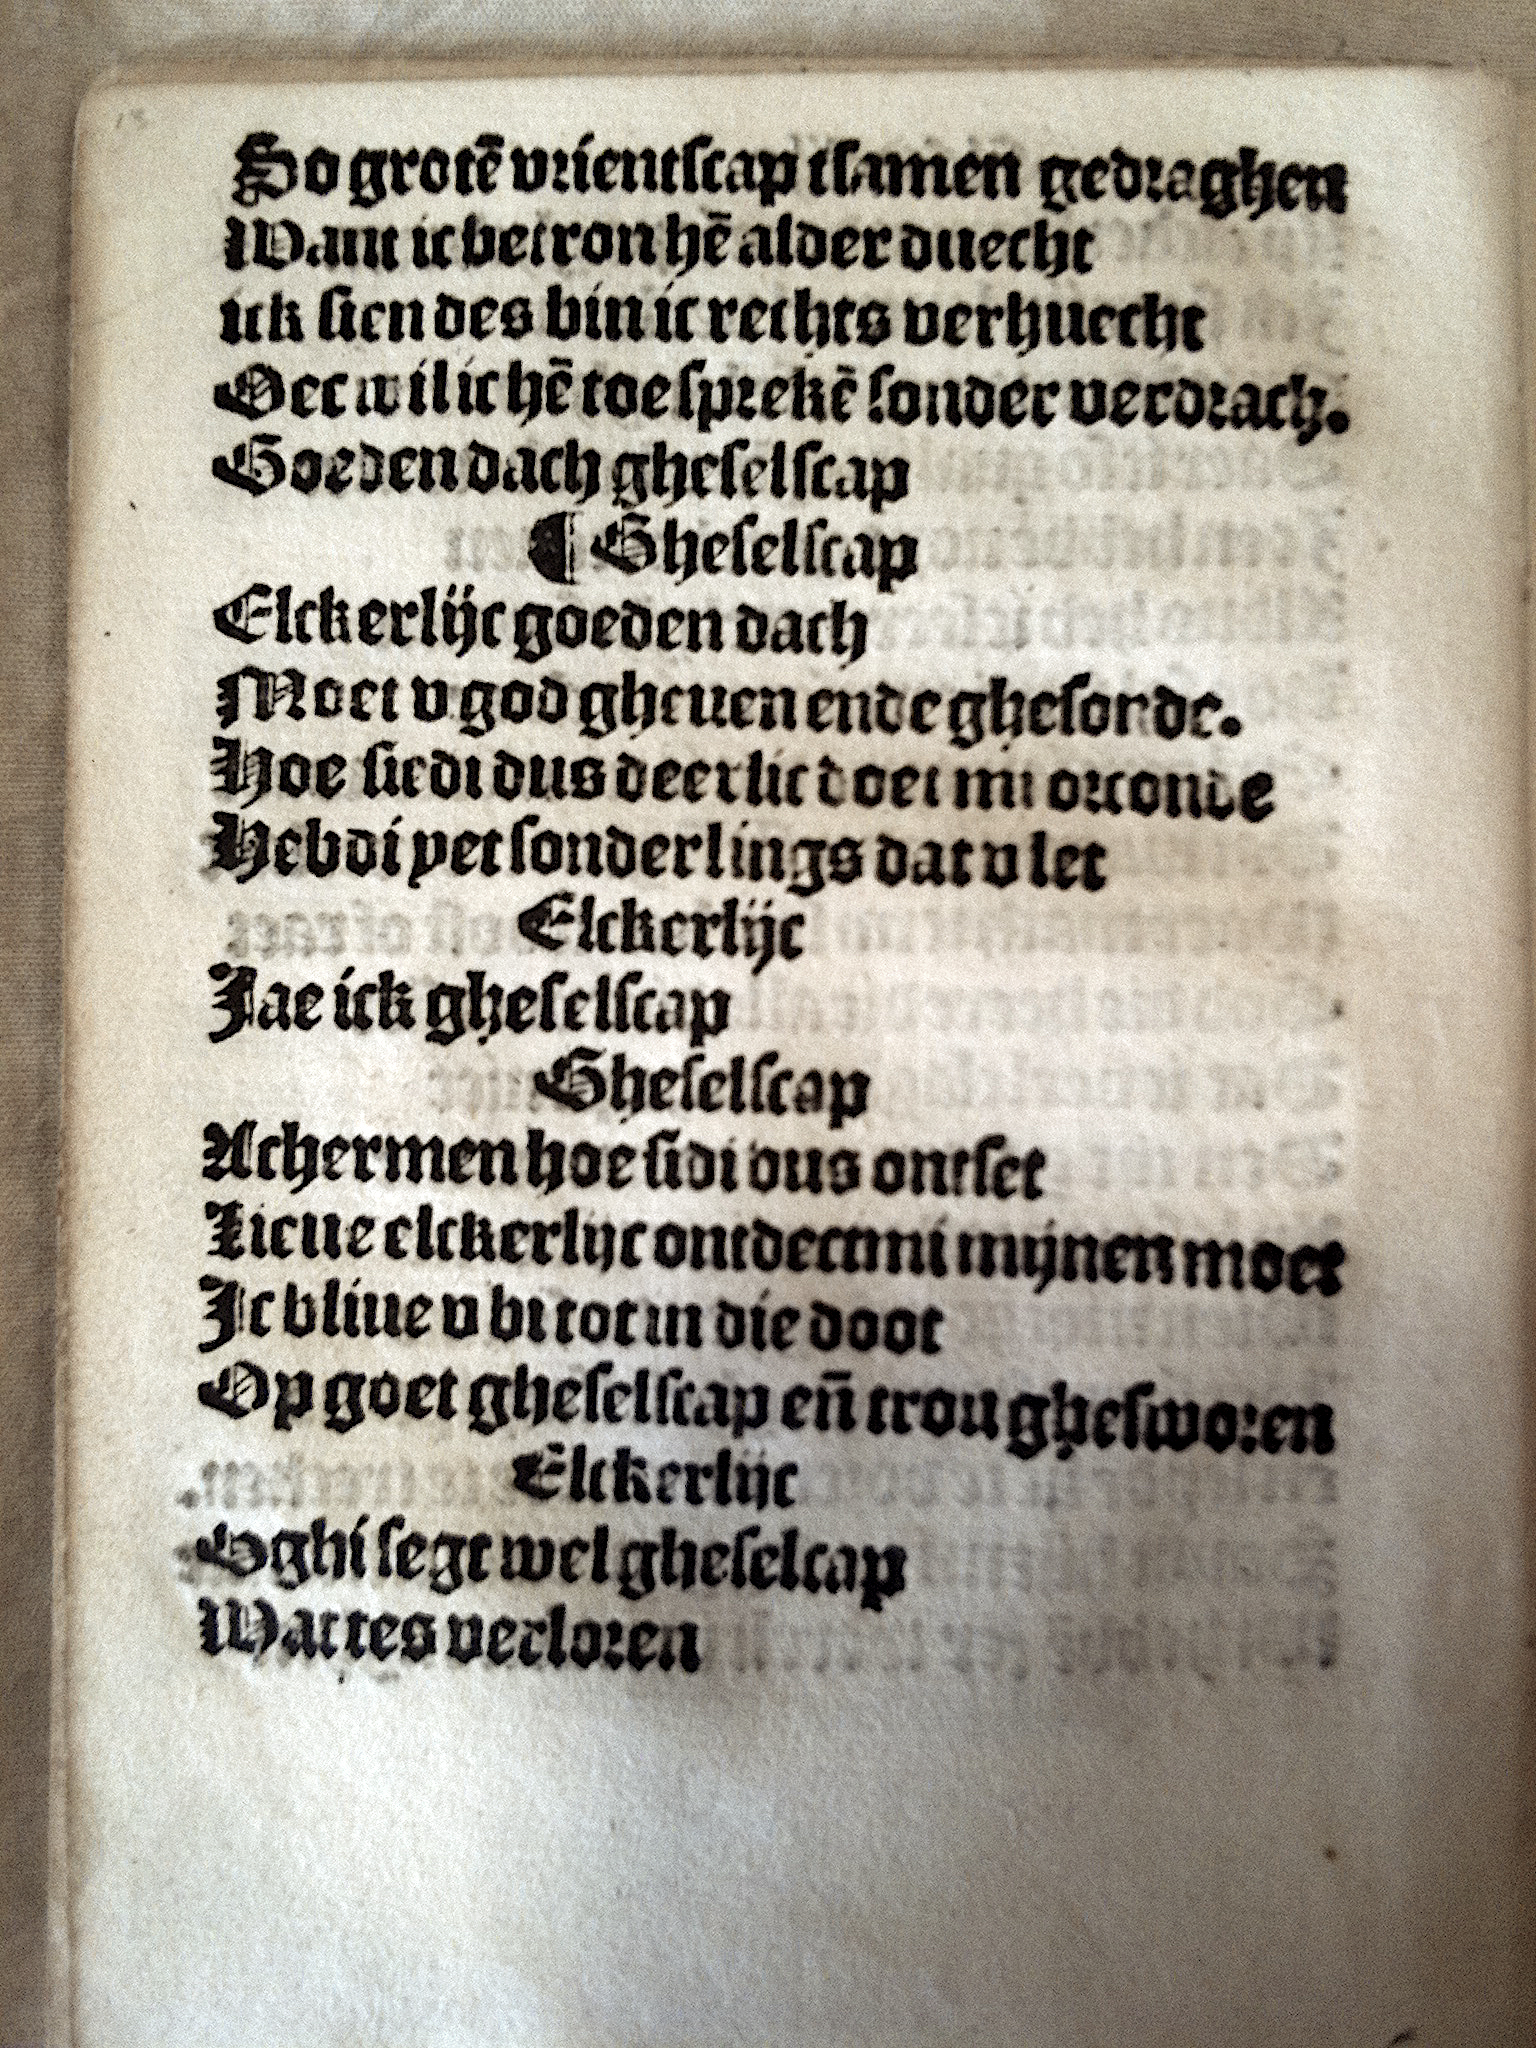 So grotē vrientscap tsamen gedraghen
Want ic betrou hē alder duecht
ick sien des bin ic rechts verhuecht
Oec wil ic hē toe sprekē sonder verdrach.
Goeden dach gheselscap
¶ Gheselscap
Elckerlijc goeden dach
Moet v god gheuen ende ghesonde.
Hoe siedi dus deerlic doet mi orconde
Hebdi yet sonderlings dat v let
Elckerlijc
Jae ick gheselscap
Gheselscap
Achermen hoe sidi dus ontset
Lieue elckerlijc ontdect mi mijnen moet
Jc bliue v bi tot in die doot
Op goet gheselscap en̄ trou ghesworen
Elckerlijc
Ghi segt wel gheselcap
Wat tes verloren